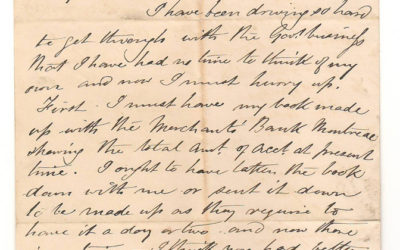 I have been driving so hard
to get through with the Govt business
that I have had no time to think of my
own and now I must hurry up.
First. I must have my book made
up with the Merchants' Bank Montreal
showing the total amt. of acct. at present
time. I ought to have taken the book
down with me or sent it down
to be made up as they require to
have it a day or two and now there
I think we had better